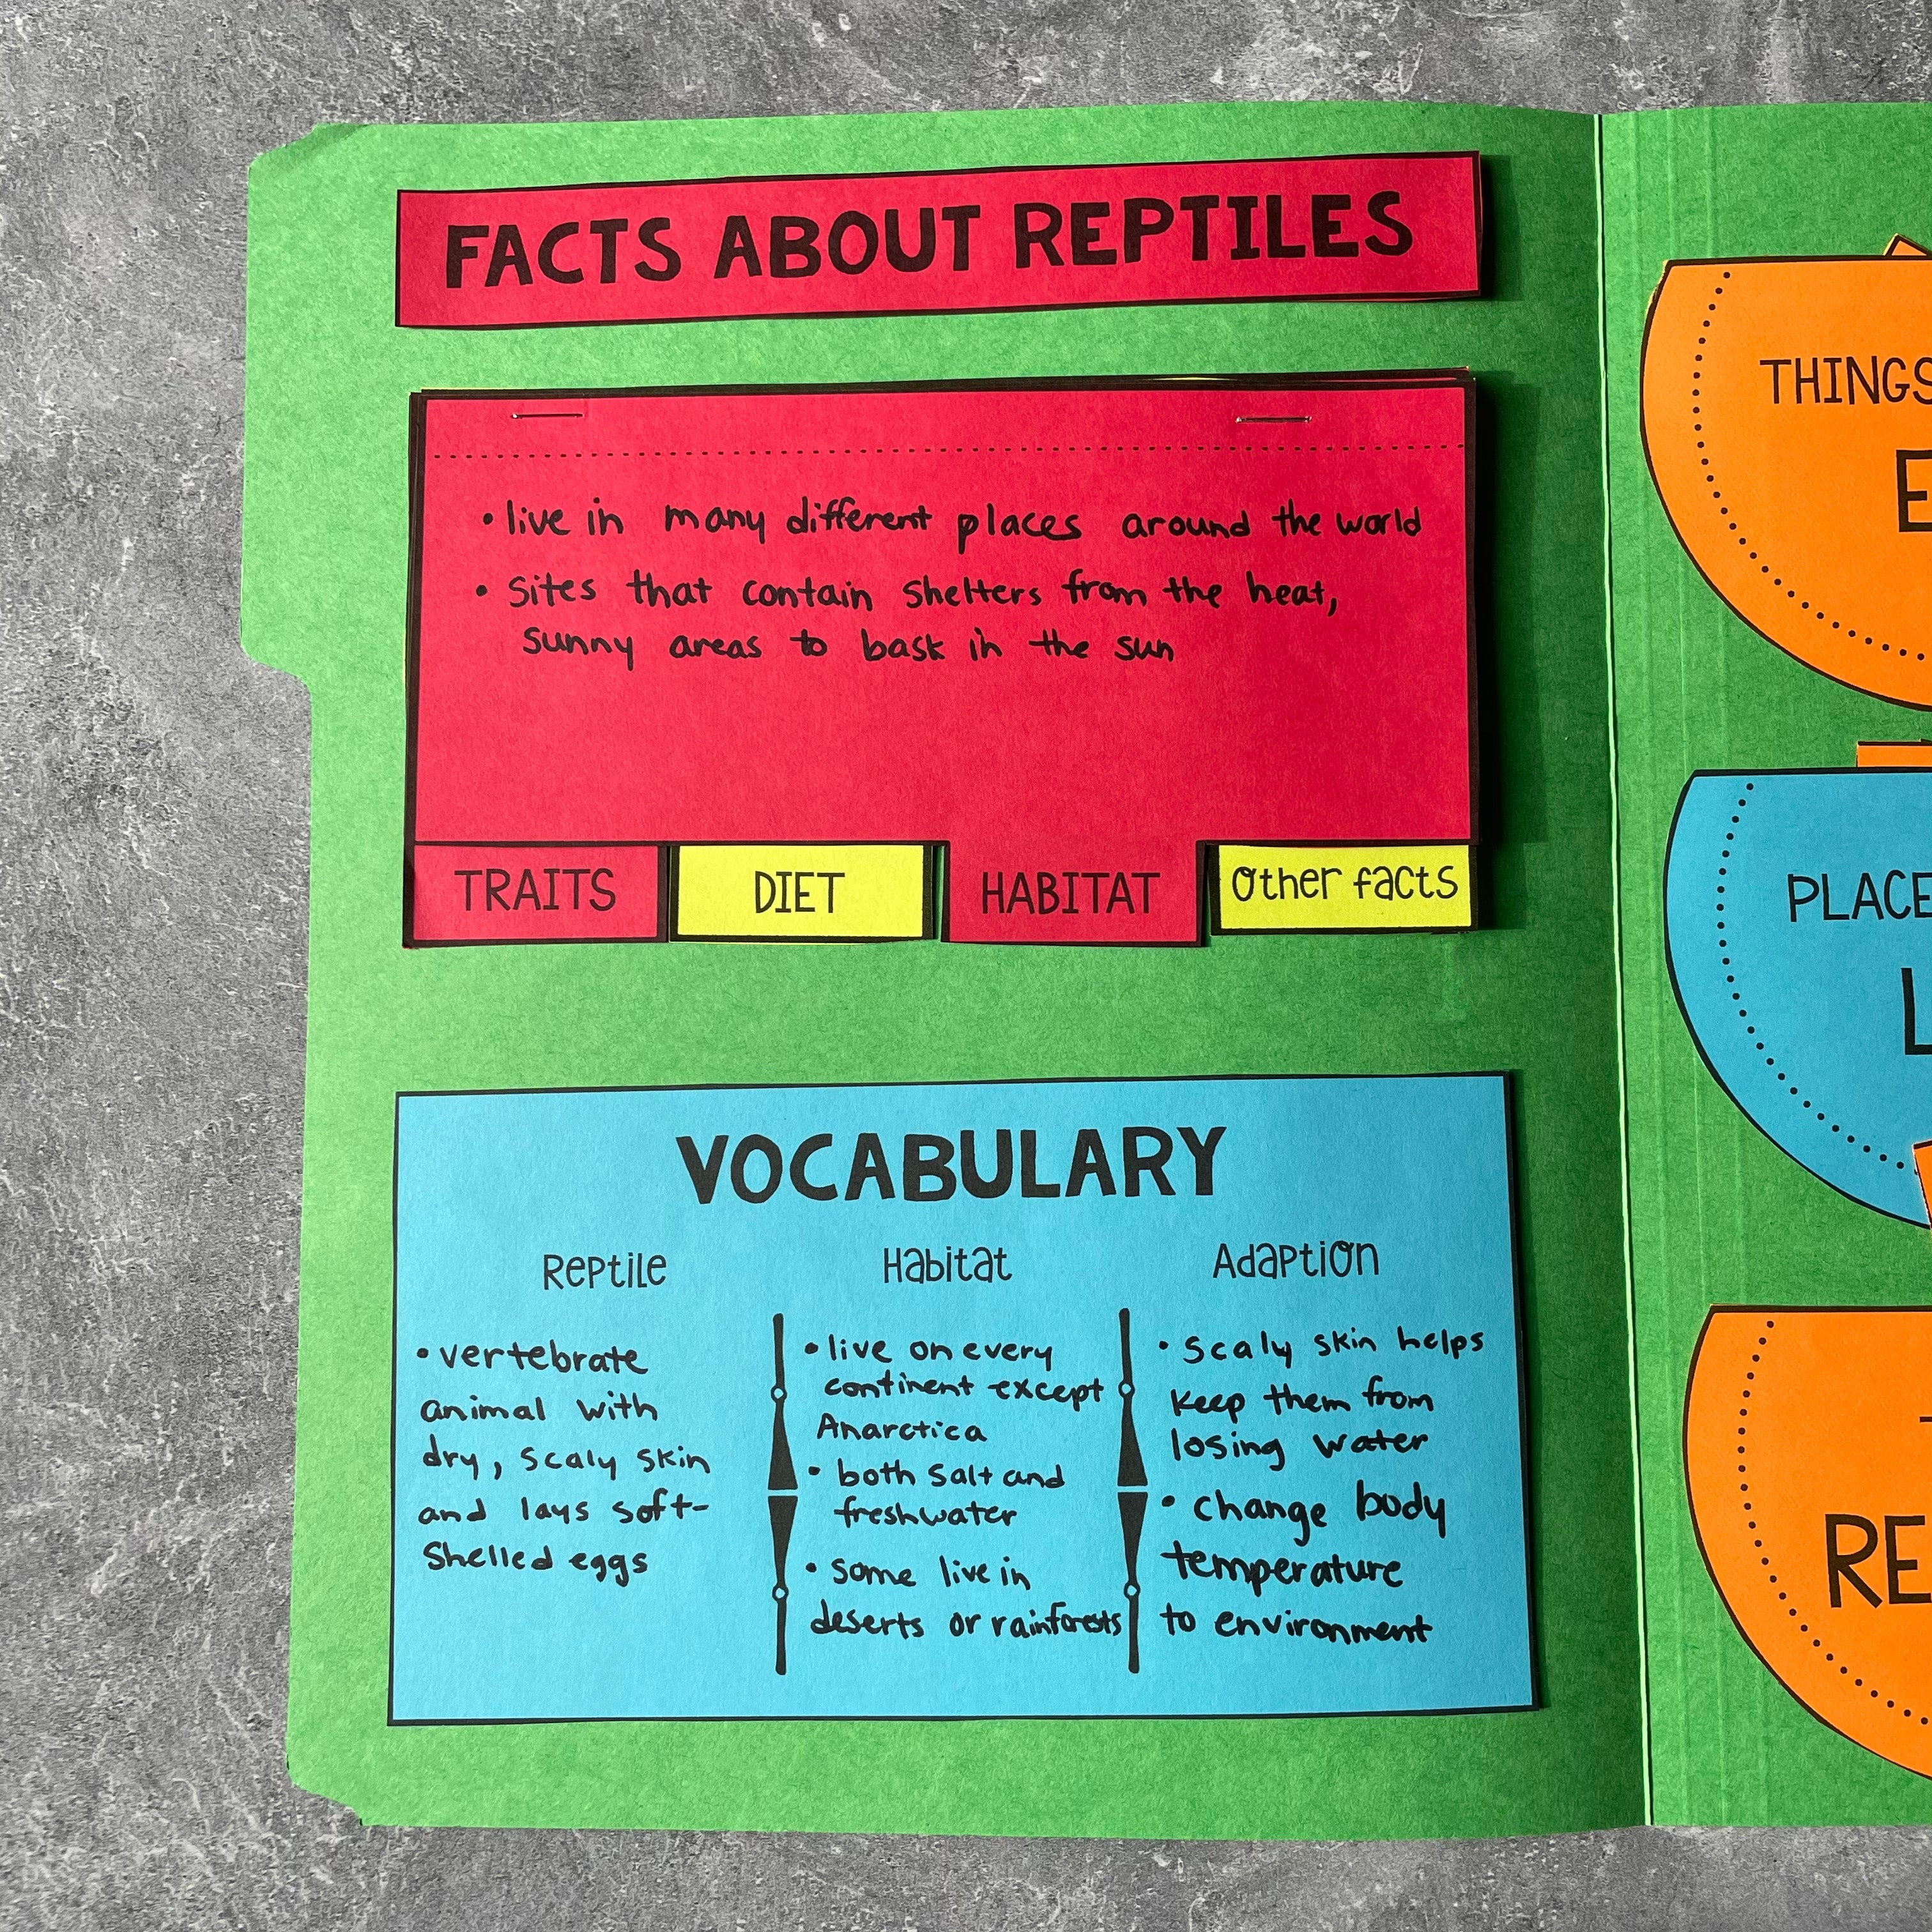 FACTS ABOUT REPTILES
• live in many different places around the world
• Sites that contain shelters from the heat,
sunny areas to bask in the sun
TRAITS
DIET
HABITAT
Other facts
VOCABULARY
Reptile
• vertebrate
animal with
dry, scaly skin
and lays soft-
shelled eggs
Habitat
• live on every
continent except
Anarctica
• both salt and
freshwater
• some live in
deserts or rainforests
Adaption
• scaly skin helps
keep them from
losing water
• change body
temperature
to environment
THINGS
E
PLACE
L
RE